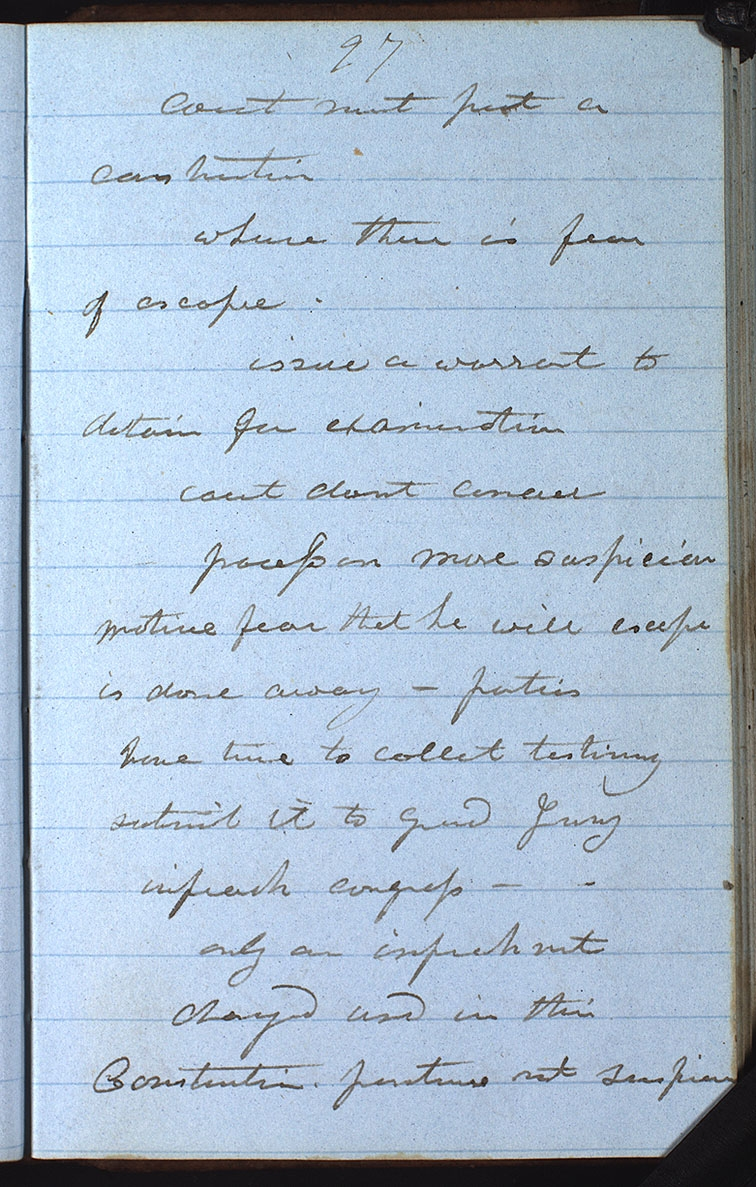 97
Court must put a
construction
where there is fear
of escape.
issue a warrant to
detain for examination
court dont concur
process on mere suspicion
motive fear that he will escape
is done away – parties
have time to collect testimony
submit it to Grand Jury
impeach congress – -
only an impeachment
charged used in this
Constitution. not suspicion